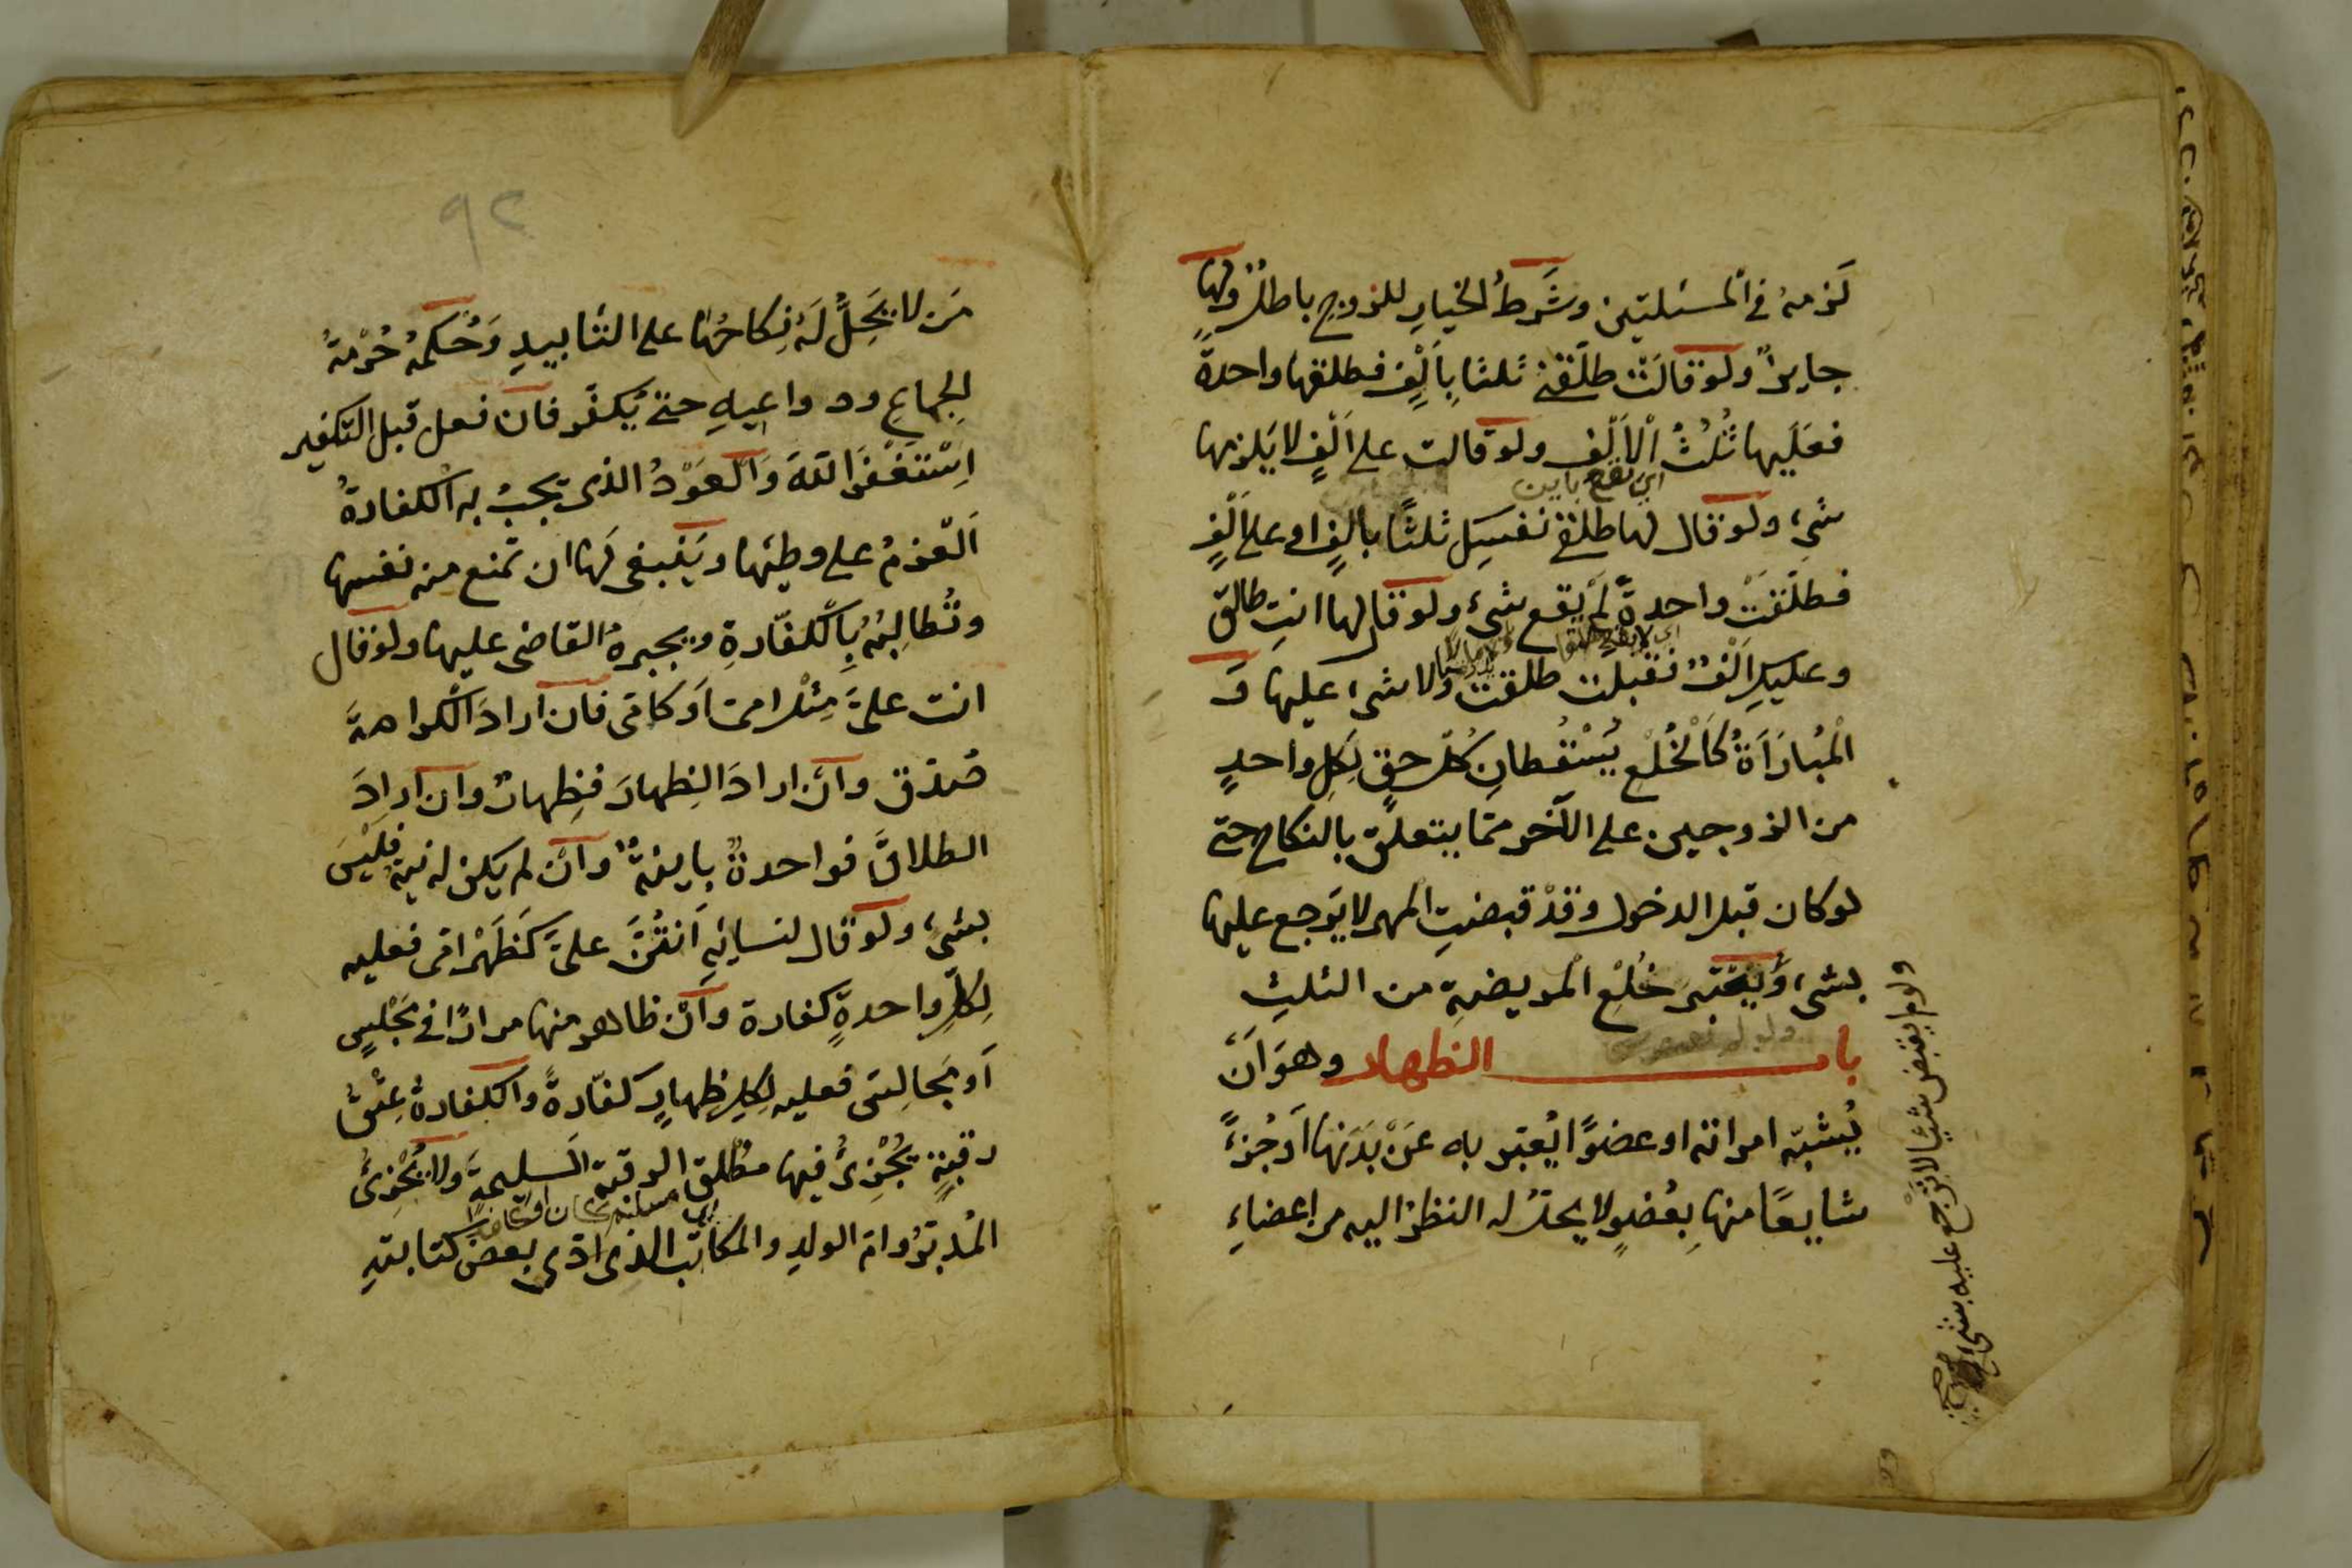 لَزمه في المسئلتين وشَرطُ الخيار للزوج باطل ولها
جايزٌ ولو قالَتْ طلّقني ثلثا بِاَلْفٍ فطلقها واحدةً
فعَلَيها ثُلُثُ الْاَلْفِ ولو قالت على اَلْفٍ لا يَلزمها
اي تقع باين
شيء ولو قال لها طلقي نفسَكِ ثلثًا بالفٍ او على اَلْفٍ
فطلّقَتْ واحدةً لَمْ يقع شيء ولو قال لها انتِ طالق
وعليكِ اَلْفٌ فقبلت طلقت ولا شيء عليها وَ
الْمُبارَاَةُ كَالْخُلْعِ يُسْقُطانِ كُلَّ حقٍ لِكلِ واحدٍ
من الزوجين على الآخر ممّا يتعلّق بالنكاح حتى
لو كان قبل الدخول وقدْ قبضتِ المهر لا يَرجع عليها
بشيء وَيُعْتبر خُلْع الْمريضةِ من الثلثِ
باب الظهار وهوَ اَنْ
يُشبّه امراته او عضوًا يُعبّر به عَنْ بَدَنِها اَوجُزءً
شايعًا منها بِعُضوٍ لا يحلّ له النظرُ اليه من اعضاءِ
ولو لم يقبض شيئا لا ترجع عليه بشيء صح
٩٢
مَن لا يَحِلُّ لَهُ نِكاحُها على التأبيدِ وَحُكمُهُ حُرْمةُ
الجماعِ ودواعيهِ حتى يُكفّر فان فعل قبل التكفير
اِسْتَغْفَرَ اللّهَ وَالعَوْدُ الذي تجبُ به الكفارةُ
اَلعَزمُ على وطيِها ويَنْبغى لَها ان تمنع منه نفسها
وتُطالِبُه بِالكفّارةِ ويجبرهُ القاضى عليها ولو قال
انت عليَّ مِثل امي اَو كامّى فان اَرادَ الكراهةَ
صُدّق وان ارادَ الظِهارَ فظِهارٌ وان اَرادَ
الطلاقَ فواحدةٌ باينةٌ وان لم يكن له نيةٌ فلَيْسَ
بشيء ولو قال لنسائِهِ اَنتُنَّ عليَّ كَظَهْر امّى فعليه
لِكلِّ واحدةٍ كفارة وان ظاهر منها مرارًا في مَجْلِسٍ
اَو مَجالِسَ فعليه لِكلِ ظِهارٍ كفّارةً والكفارةُ عِتْقُ
رقبةٍ يُجْزِئُ فيها مطلق الرقبة السليمةِ ولا يُجْزِئُ
اي مسلم كان او كافرًا
المُدبّرُ وام الولدِ والمكاتَب الذي ادّى بعضَ كتابتِهِ